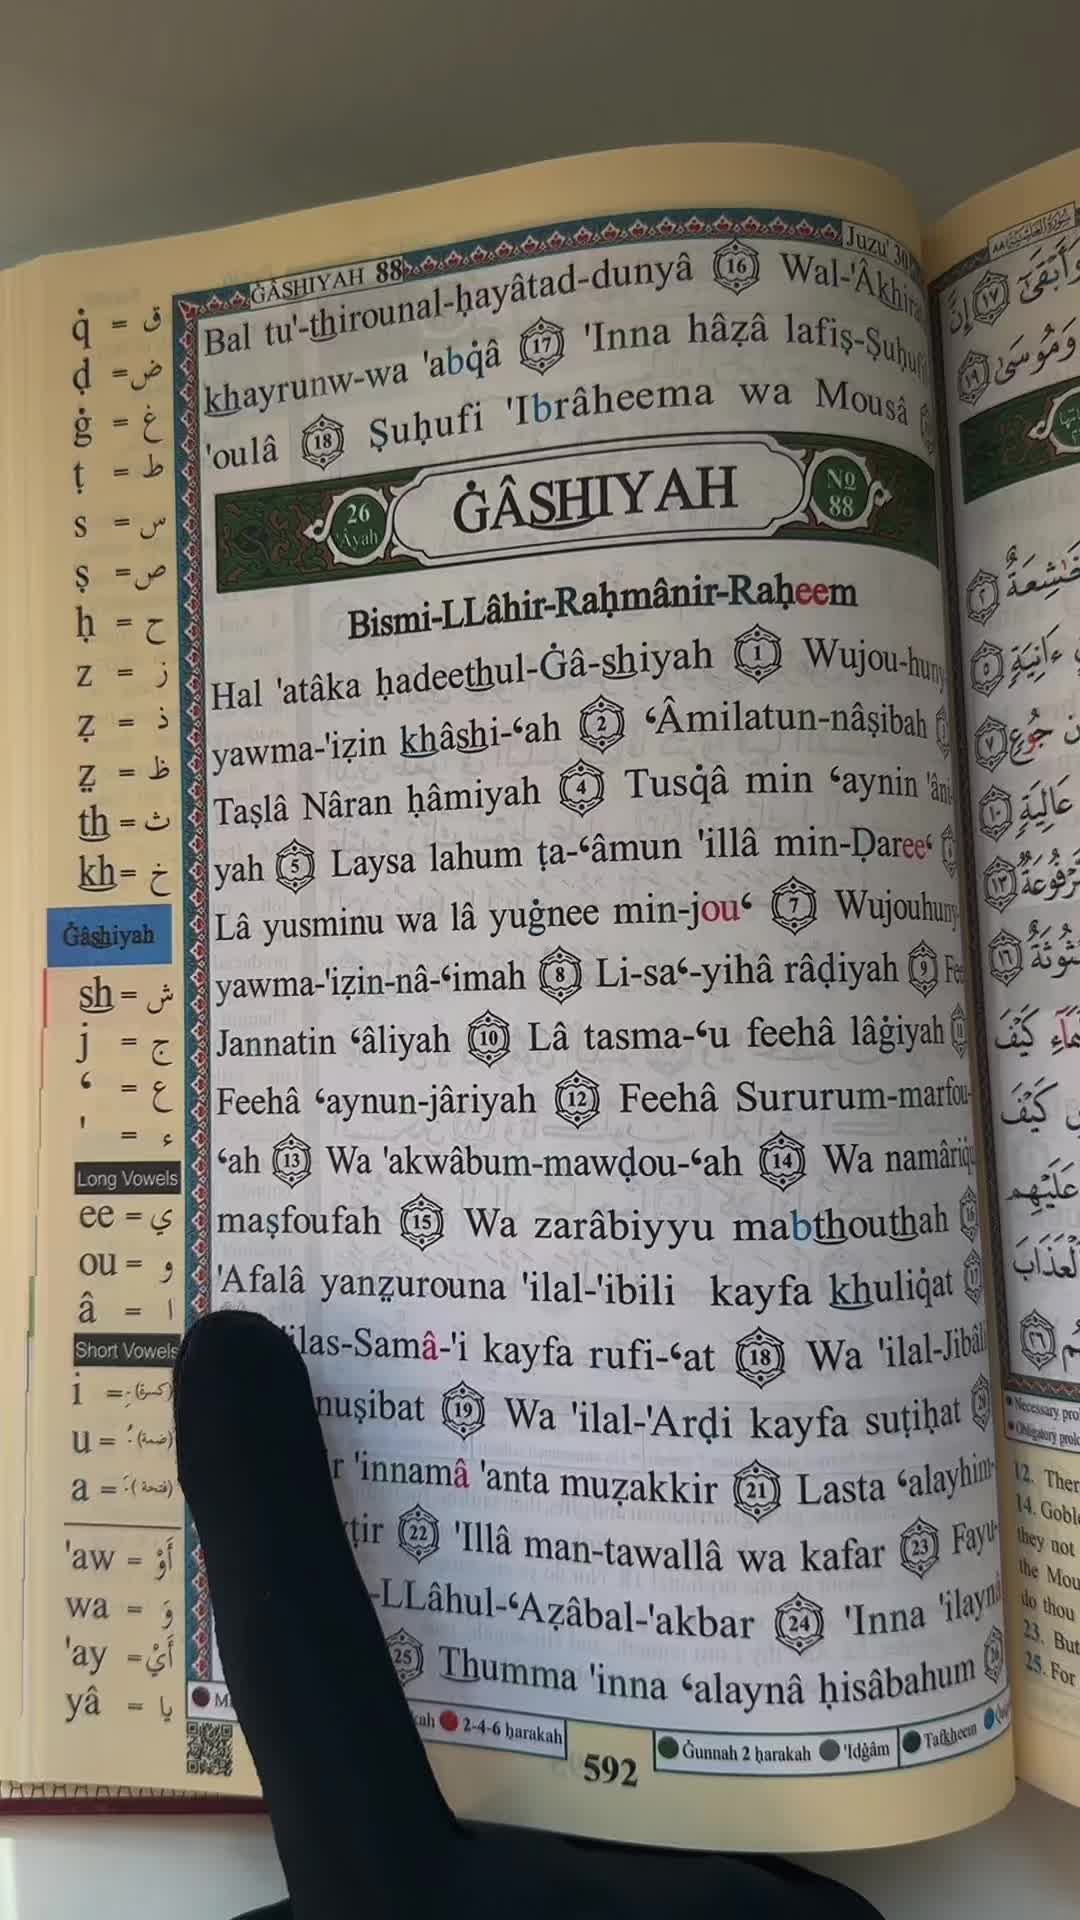 ĠÂSHIYAH 88
Juzu' 30
Bal tu'-thirounal-ḥayâtad-dunyâ 16 Wal-'Âkhira
khayrunw-wa 'abq̇â 17 'Inna hâẓa lafiṣ-Ṣuḥufi
'oulâ 18 Ṣuḥufi 'Ibrâheema wa Mousâ
26 'Âyah
ĠÂSHIYAH
No 88
Bismi-LLâhir-Raḥmânir-Raḥeem
Hal 'atâka ḥadeethul-Ġâ-shiyah 1 Wujou-huny
yawma-'iẓin khâshi-‘ah 2 ‘Âmilatun-nâṣibah
Taṣlâ Nâran ḥâmiyah 4 Tusq̇â min ‘aynin 'âni
yah 5 Laysa lahum ṭa-‘âmun 'illâ min-Ḍaree‘
Lâ yusminu wa lâ yuġnee min-jou‘ 7 Wujouhuny
yawma-'iẓin-nâ-‘imah 8 Li-sa‘-yihâ râḍiyah 9 Fee
Jannatin ‘âliyah 10 Lâ tasma-‘u feehâ lâġiyah 11
Feehâ ‘aynun-jâriyah 12 Feehâ Sururum-marfou-
‘ah 13 Wa 'akwâbum-mawḍou-‘ah 14 Wa namâriq̇u
maṣfoufah 15 Wa zarâbiyyu mabthouthah 16
'Afalâ yanẓurouna 'ilal-'ibili kayfa khuliq̇at 17
'ilas-Samâ-'i kayfa rufi-‘at 18 Wa 'ilal-Jibâl
nuṣibat 19 Wa 'ilal-'Arḍi kayfa suṭiḥat 20
r 'innamâ 'anta muẓakkir 21 Lasta ‘alayhim-
ṭir 22 'Illâ man-tawallâ wa kafar 23 Fayu-
-LLâhul-‘Aẓâbal-'akbar 24 'Inna 'ilaynâ
25 Thumma 'inna ‘alaynâ ḥisâbahum 26
kah 2-4-6 ḥarakah
Ġunnah 2 ḥarakah 'Idġâm
Tafkheem
592
q̇ = ق
ḍ = ض
ġ = غ
ṭ = ط
s = س
ṣ = ص
ḥ = ح
z = ز
ẓ = ذ
ẓ̤ = ظ
th = ث
kh = خ
Ġâshiyah
sh = ش
j = ج
‘ = ع
' = ء
Long Vowels
ee = ي
ou = و
â = ا
Short Vowels
i = (كسرة)
u = (ضمة)
a = (فتحة)
'aw = أَوْ
wa = وَ
'ay = أَيْ
yâ = يا
وَأَبْقَىٰ ١٧ إِنَّ
وَمُوسَىٰ ١٩
خَٰشِعَةٌ ٢
ءَانِيَةٍ ٥
جُوعٍ ٧
عَالِيَةٍ ١٠
١٣
١٦
كَيْفَ
كَيْفَ
عَلَيْهِم
ٱلْعَذَابَ
٢٦
Necessary pro
Obligatory prolo
12. Ther
14. Gobl
they not
the Mou
do thou
23. But
25. For